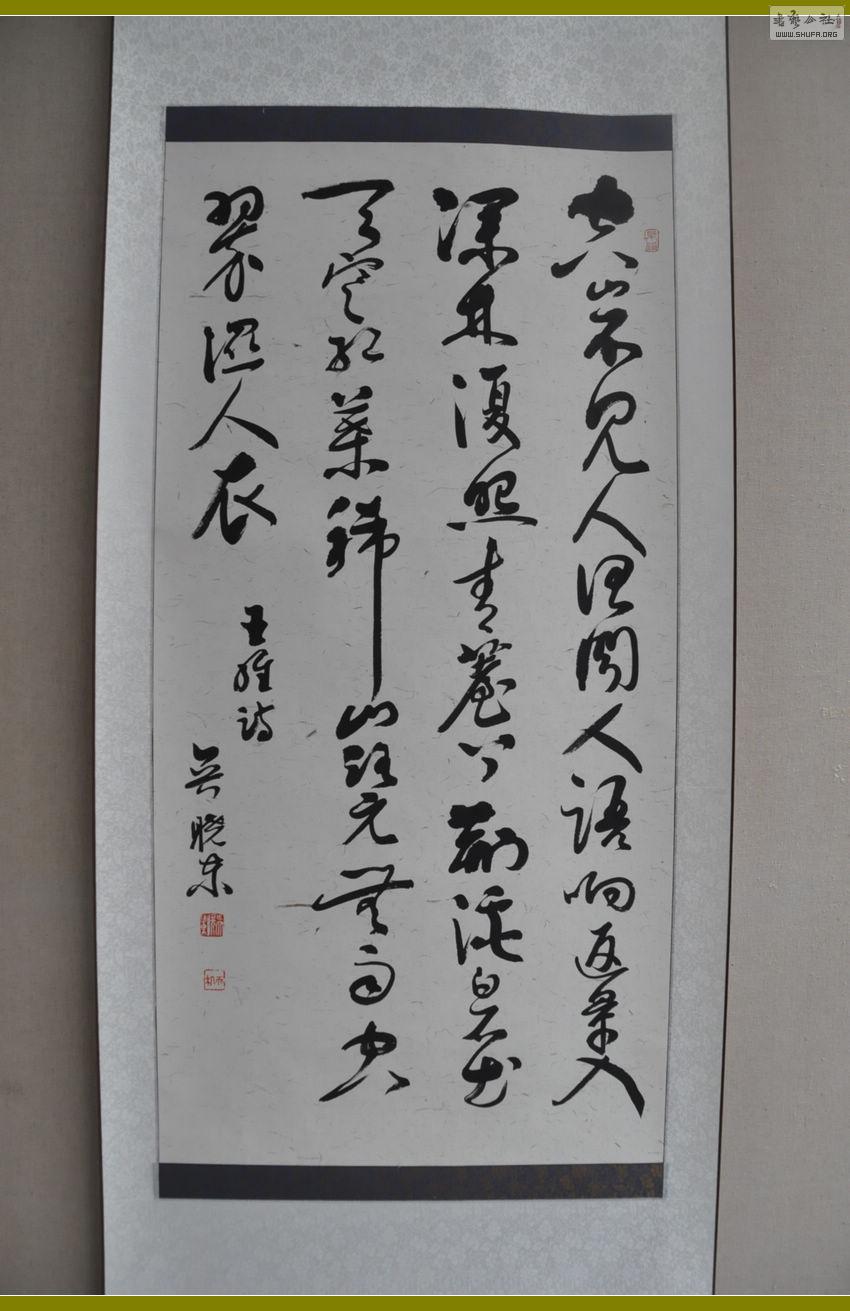 空山不見人但聞人語响返景入
深林復照青苔上荆溪白石出
天寒红葉稀山路元無雨空
翠湿人衣
王維诗
吴晓东
书艺公社
WWW.SHUFA.ORG